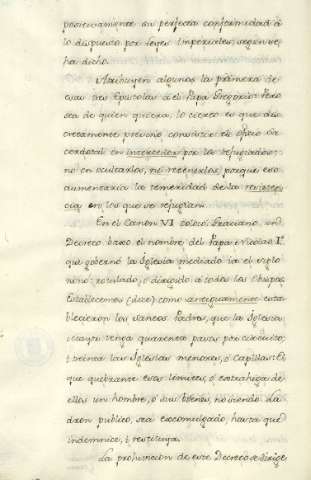 positivamente su perfecta conformidad á
lo dispuesto por Leyes Imperiales, segun se
ha dicho.
Atribuyen algunos la primera de
esas tres Epistolas á el Papa Gregorio: Pero
sea de quien quiera, lo cierto es que dis-
cretamente previno consistir el oficio Sa-
cerdotal en interceder por los refugiados:
no en ocultarlos, no retenerlos porque eso
aumentaria la temeridad de la
en los que se refugian.
En el Canon VI colocó Graciano un
Decreto baxo el nombre del Papa Nicolas I.º
que governó la Iglesia mediado ya el siglo
nono: rotulado, ó dirigido á todos los Obispos
Establecemos (dice) como antiguamente esta-
blecieron los Santos Padres, que la Iglesia
mayor tenga quarenta pasos por circuito,
i treinta las Iglesias menores, ó Capillas: El
que quebrante esos limites, ó extrahiga de
ellos un hombre, ó sus bienes, no siendo La-
dron publico, sea excomulgado, hasta que
indemnice, i restituya.
La prohivicion de este Decreto se dirige